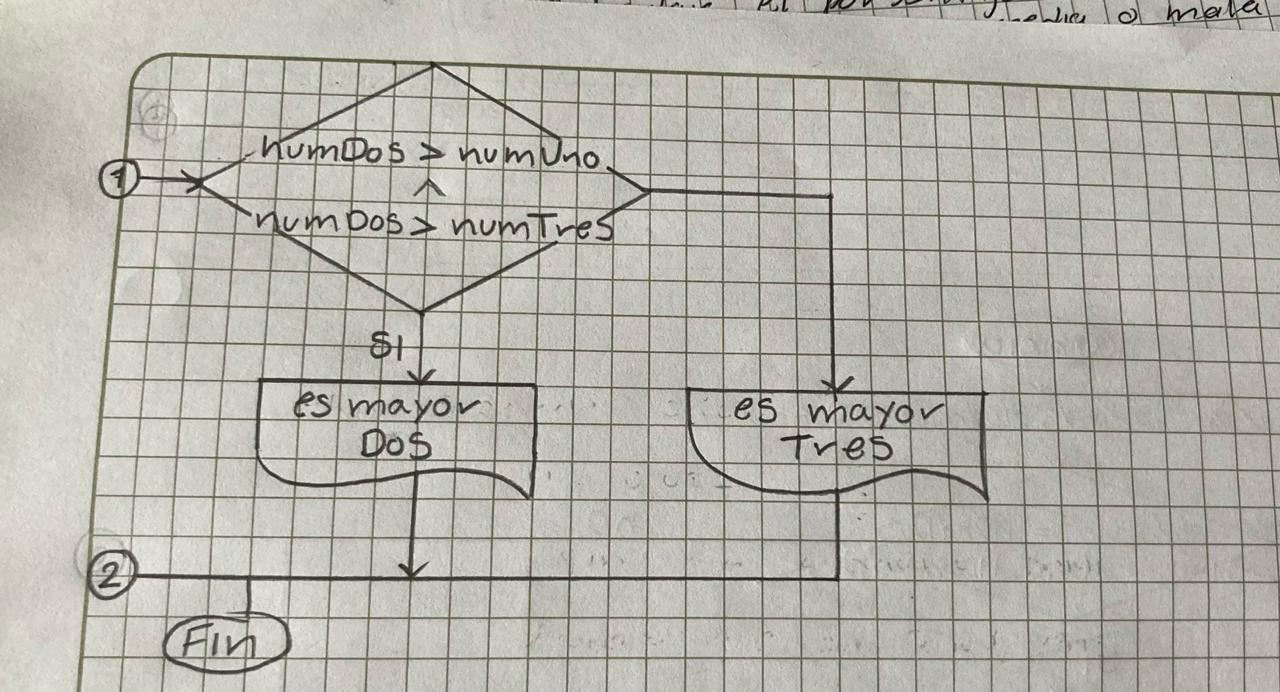 o mala
numDos > numUno
1
^
numDos > numTres
SI
es mayor
Dos
es mayor
Tres
2
Fin